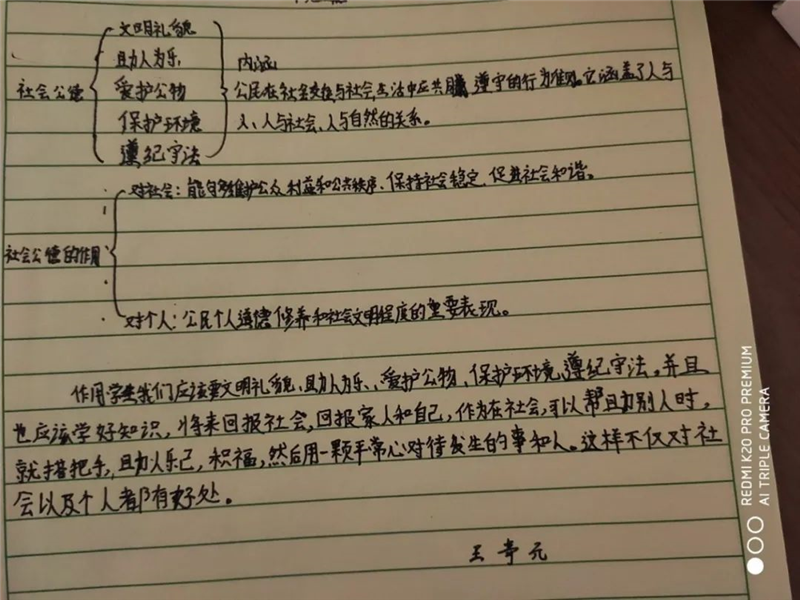 文明礼貌
助人为乐
内涵
社会公德
爱护公物
公民在社会交往与社会生活中应共同遵守的行为准则。它涵盖了人与
保护环境
人、人与社会、人与自然的关系。
遵纪守法
对社会：能够维护公众利益和公共秩序、保持社会稳定、促进社会和谐。
社会公德的作用
对个人：公民个人道德修养和社会文明程度的重要表现。
作用学生我们应该要文明礼貌、助人为乐、爱护公物、保护环境、遵纪守法。并且
也应该学好知识，将来回报社会，回报家人和自己，作为在社会，可以帮助别人时，
就搭把手，助人乐己，积福，然后用一颗平常心对待发生的事和人。这样不仅对社
会以及个人都有好处。
王奇元
REDMI K20 PRO PREMIUM
AI TRIPLE CAMERA